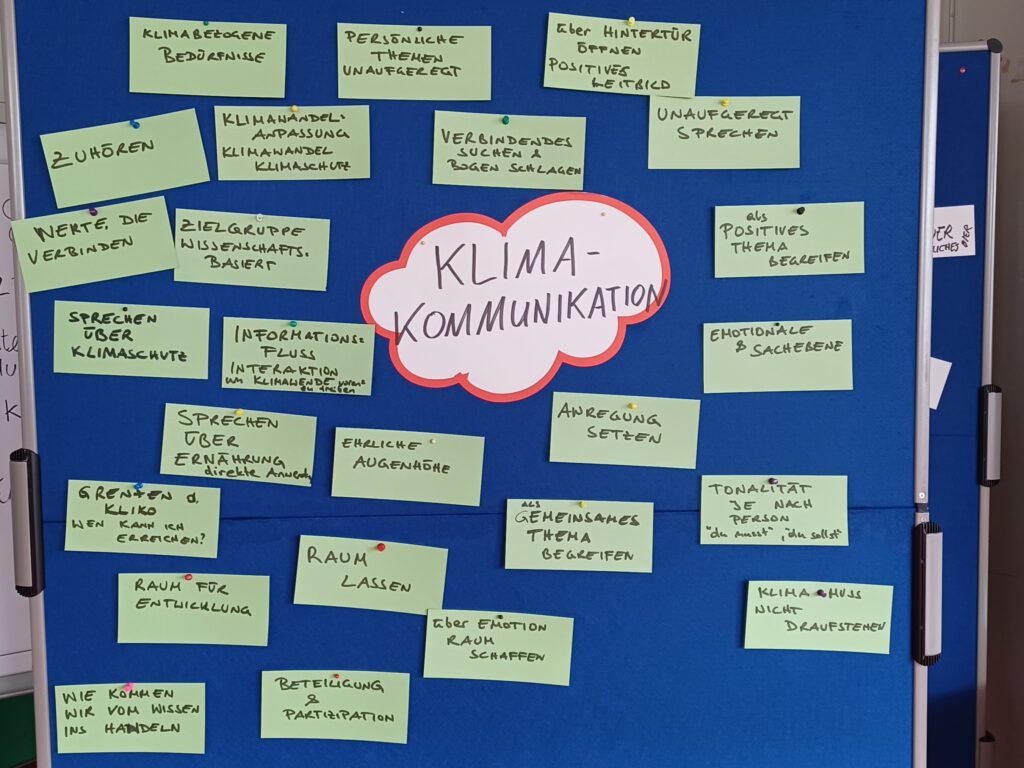 KLIMABEZOGENE
BEDÜRFNISSE
PERSÖNLICHE
THEMEN
UNAUFGEREGT
über HINTERTÜR
ÖFFNEN
POSITIVES
LEITBILD
ZUHÖREN
KLIMAWANDEL-
ANPASSUNG
KLIMAWANDEL
KLIMASCHUTZ
VERBINDENDES
SUCHEN &
BOGEN SCHLAGEN
UNAUFGEREGT
SPRECHEN
WERTE, DIE
VERBINDEN
ZIELGRUPPE
WISSENSCHAFTS-
BASIERT
KLIMA-
KOMMUNIKATION
als
POSITIVES
THEMA
BEGREIFEN
SPRECHEN
ÜBER
KLIMASCHUTZ
INFORMATIONS-
FLUSS
INTERAKTION
um KLIMAWENDE
zu treiben
EMOTIONALE
& SACHEBENE
SPRECHEN
ÜBER
ERNÄHRUNG
direkte
EHRLICHE
AUGENHÖHE
ANREGUNG
SETZEN
GRENZEN d.
KLIKO
WEN KANN ICH
ERREICHEN?
ALS
GEMEINSAMES
THEMA
BEGREIFEN
TONALITÄT
JE NACH
PERSON
"du musst", "du sollst"
RAUM
LASSEN
RAUM FÜR
ENTWICKLUNG
über EMOTION
RAUM
SCHAFFEN
KLIMA MUSS
NICHT
DRAUFSTEHEN
WIE KOMMEN
WIR VOM WISSEN
INS HANDELN
BETEILIGUNG
&
PARTIZIPATION